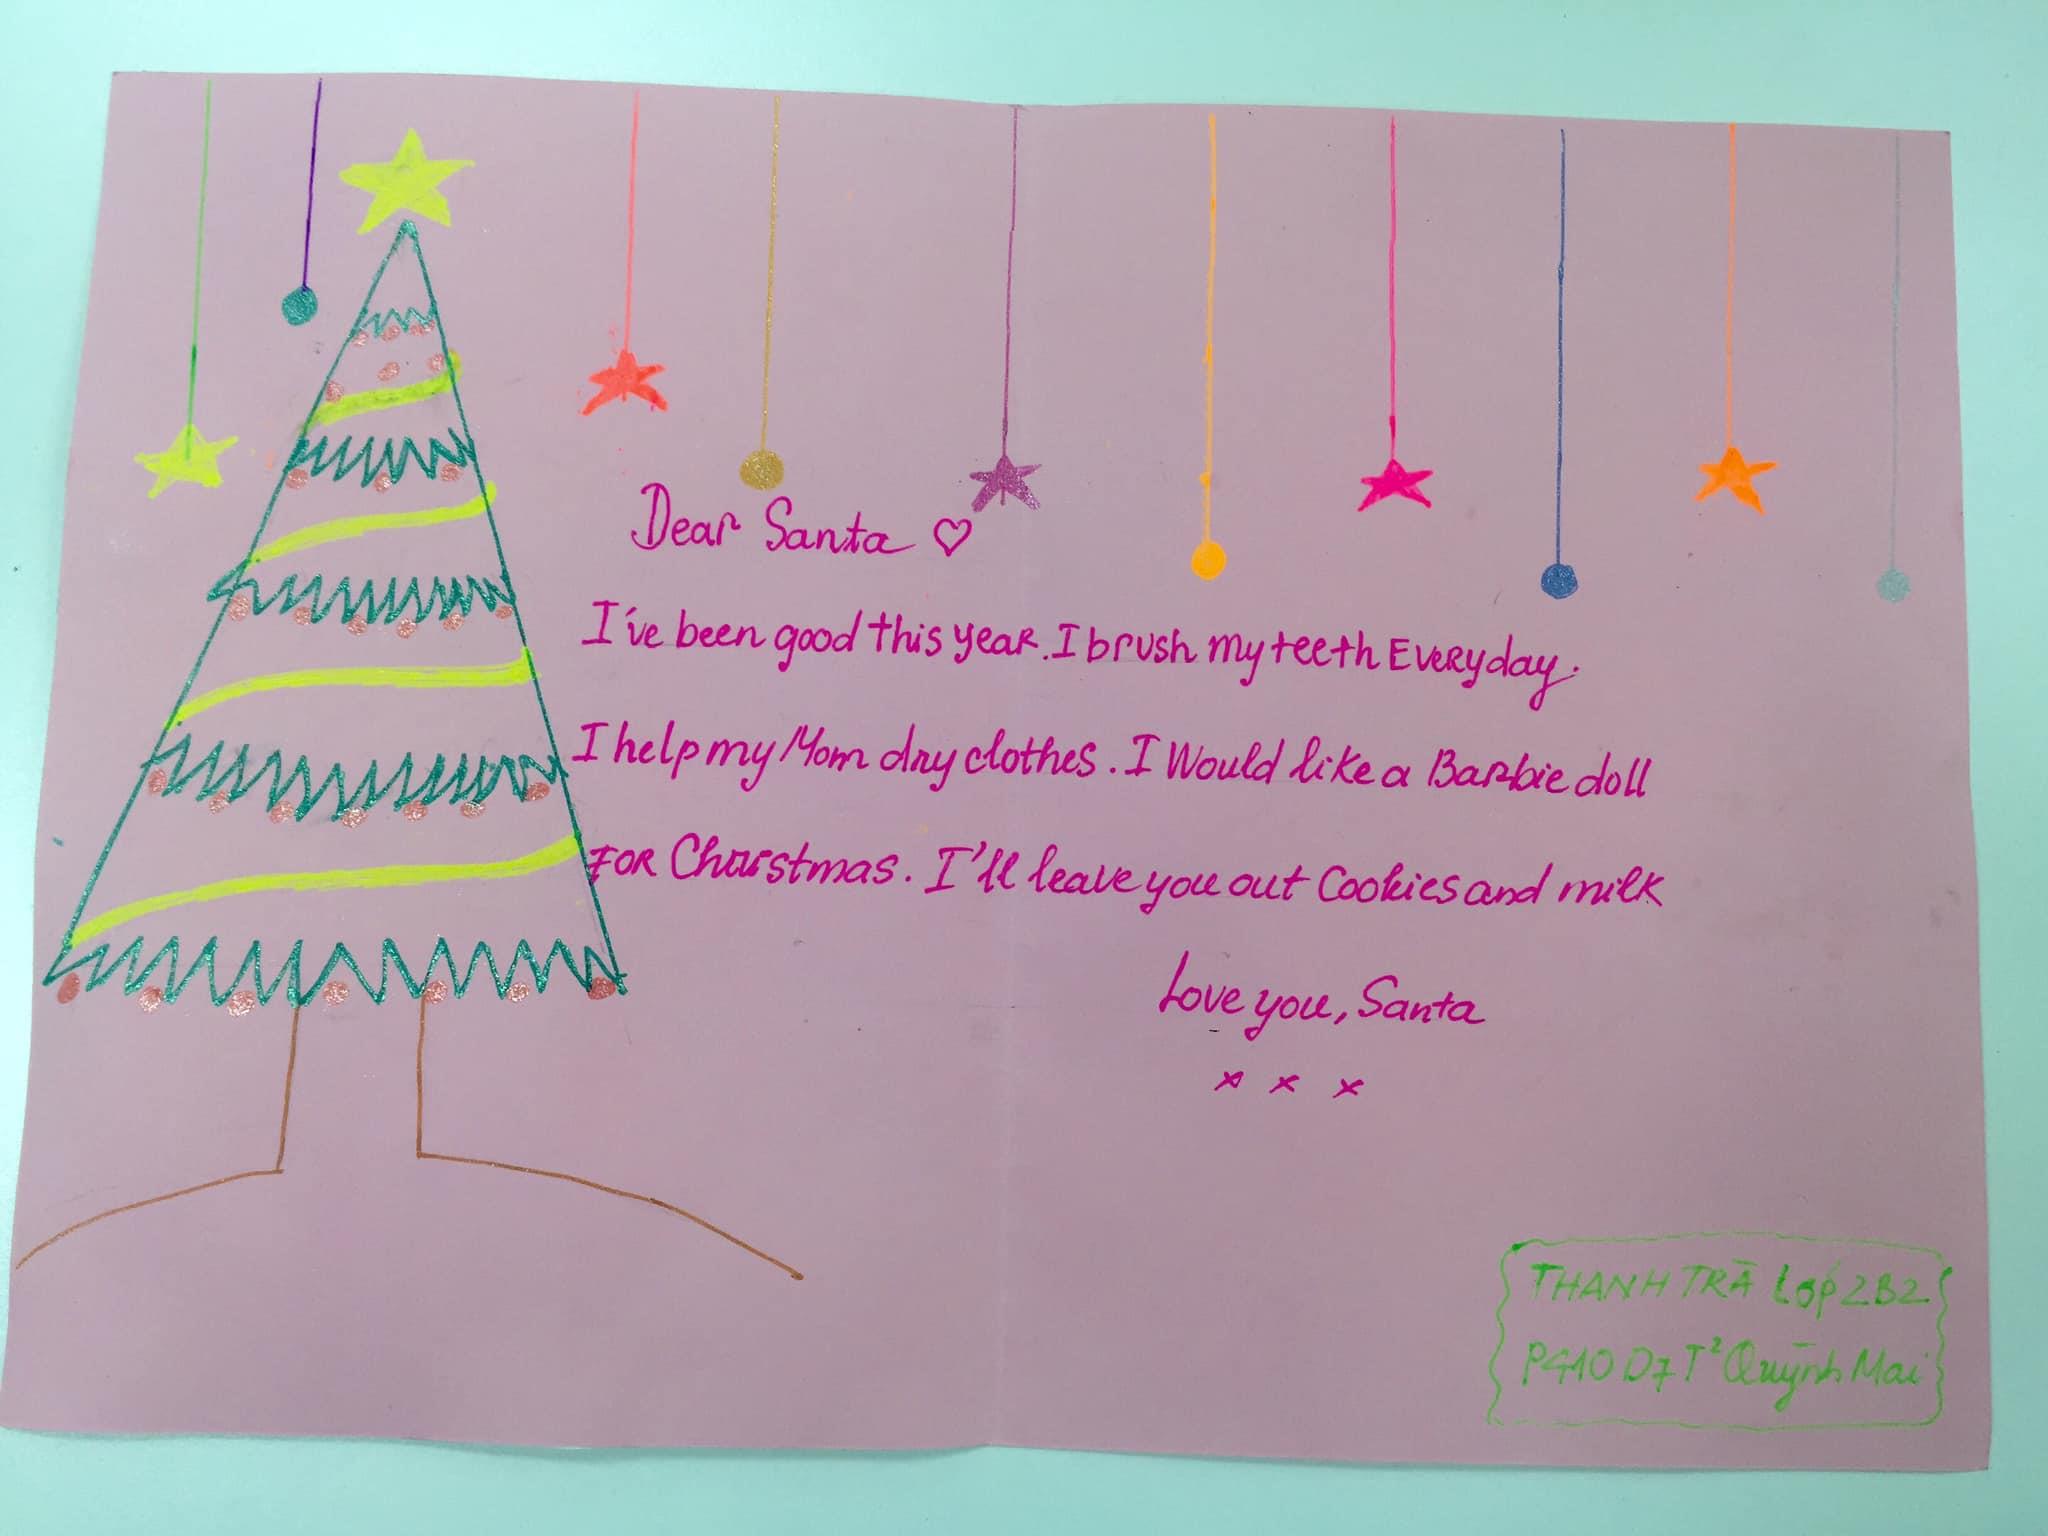 Dear Santa ♡
I've been good this year. I brush my teeth Everyday.
I help my Mom dry clothes. I Would like a Barbie doll
FOR Christmas. I'll leave you out Cookies and milk
Love you, Santa
x x x
THANH TRÀ Lớp 2B2
P410 D7 T² Quỳnh Mai